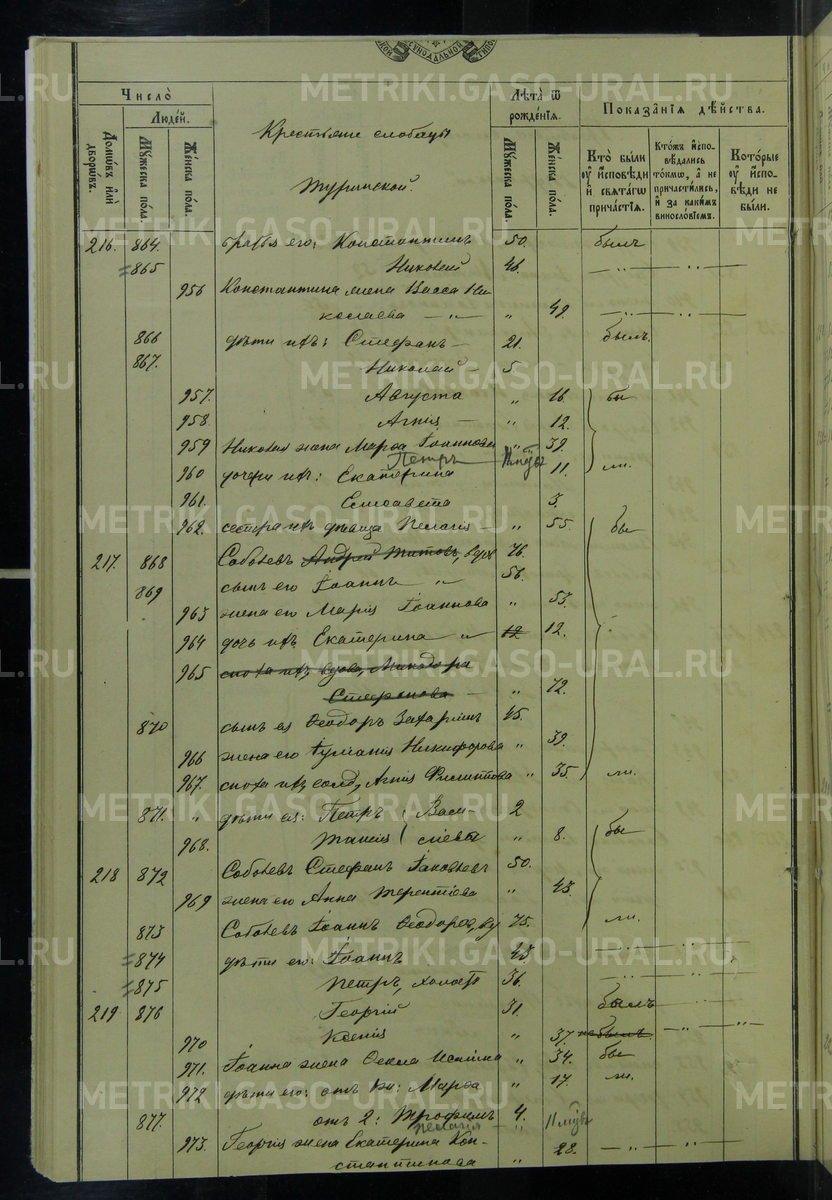 METRIKI.GASO-URAL.RU
Число̀
Людéй.
Домѡ́въ и҆лѝ дворѡ́въ.
Мꙋ́жеска по́ла.
Же́нска по́ла.
Крестьяне слободы
Туринской.
Лѣ́та ѿ рожде́нїѧ.
Мꙋ́жеска по́ла.
Же́нска по́ла.
Показа̑нїѧ дѣ́йства.
Кто̀ бы́ли оу҆ и҆сповѣ́ди и҆ свѧта́гѡ прича́стїѧ.
Кто́жъ и҆спо-вѣ́дались то́кмѡ, а҆ не причасти́лись, и҆ за каки́мъ винословїемъ.
Кото́рые оу҆ и҆спо-вѣ́ди не бы́ли.
216. 864. братья его: Константинъ 50. былъ
=865 Никовий 46. — „ — „ —
956 Константина жена Васса Ни-
колаева — „ — „ 49. — „ — „ —
866 дѣти ихъ: Стефанъ — 21. былъ.
867. Николай — 5.
957. Августа „ 16. бы
958. Агнія — „ 12.
959 жена Марѳа Іоаннова „ 39.
Петръ
960 дочери ихъ: Екатерина 11. ли.
961. Елисавета 3.
962. сестра ихъ дѣвица Пелагія — „ 55. бы
217. 868 Андрей Титовъ, вдов 76.
869 сынъ его Іоаннъ „ 56.
963 жена его Марія Іоаннова „ 53.
964 дочь ихъ Екатерина „ 12 12.
965 сноха ихъ вдова,
Стефанова — „ 72.
870 сынъ ея Ѳеодоръ Захаріинъ 45.
966 жена его Іуліанія Никифорова „ 39.
967. сноха ихъ солд, Агнія Филиппова „ 35 ли.
871. „ дѣти ея: Петръ Васи- 2
968. Таисія сіевы „ 8. бы
218 872 Стефанъ Іаковлевъ 50.
969 жена его Анна Терентіева „ 43.
873 Іоаннъ Ѳеодоров, ву 75. ли.
=874 дѣти его: Іоаннъ 43 — „ — „ —
=875 Петръ, холостъ 36. — „ — „ —
219 876 Георгій 31. былъ
970 Ксенія „ 37. не былъ — „ — „
971. Іоанна жена Ѳекла „ 34. бы
972 дѣти его: отъ 1й: Марѳа „ 17. ли.
877. отъ 2: Трофимъ 4.
Пелагія — „
973. Георгія жена Екатерина Кон- 28. — „ — „
стантинова „